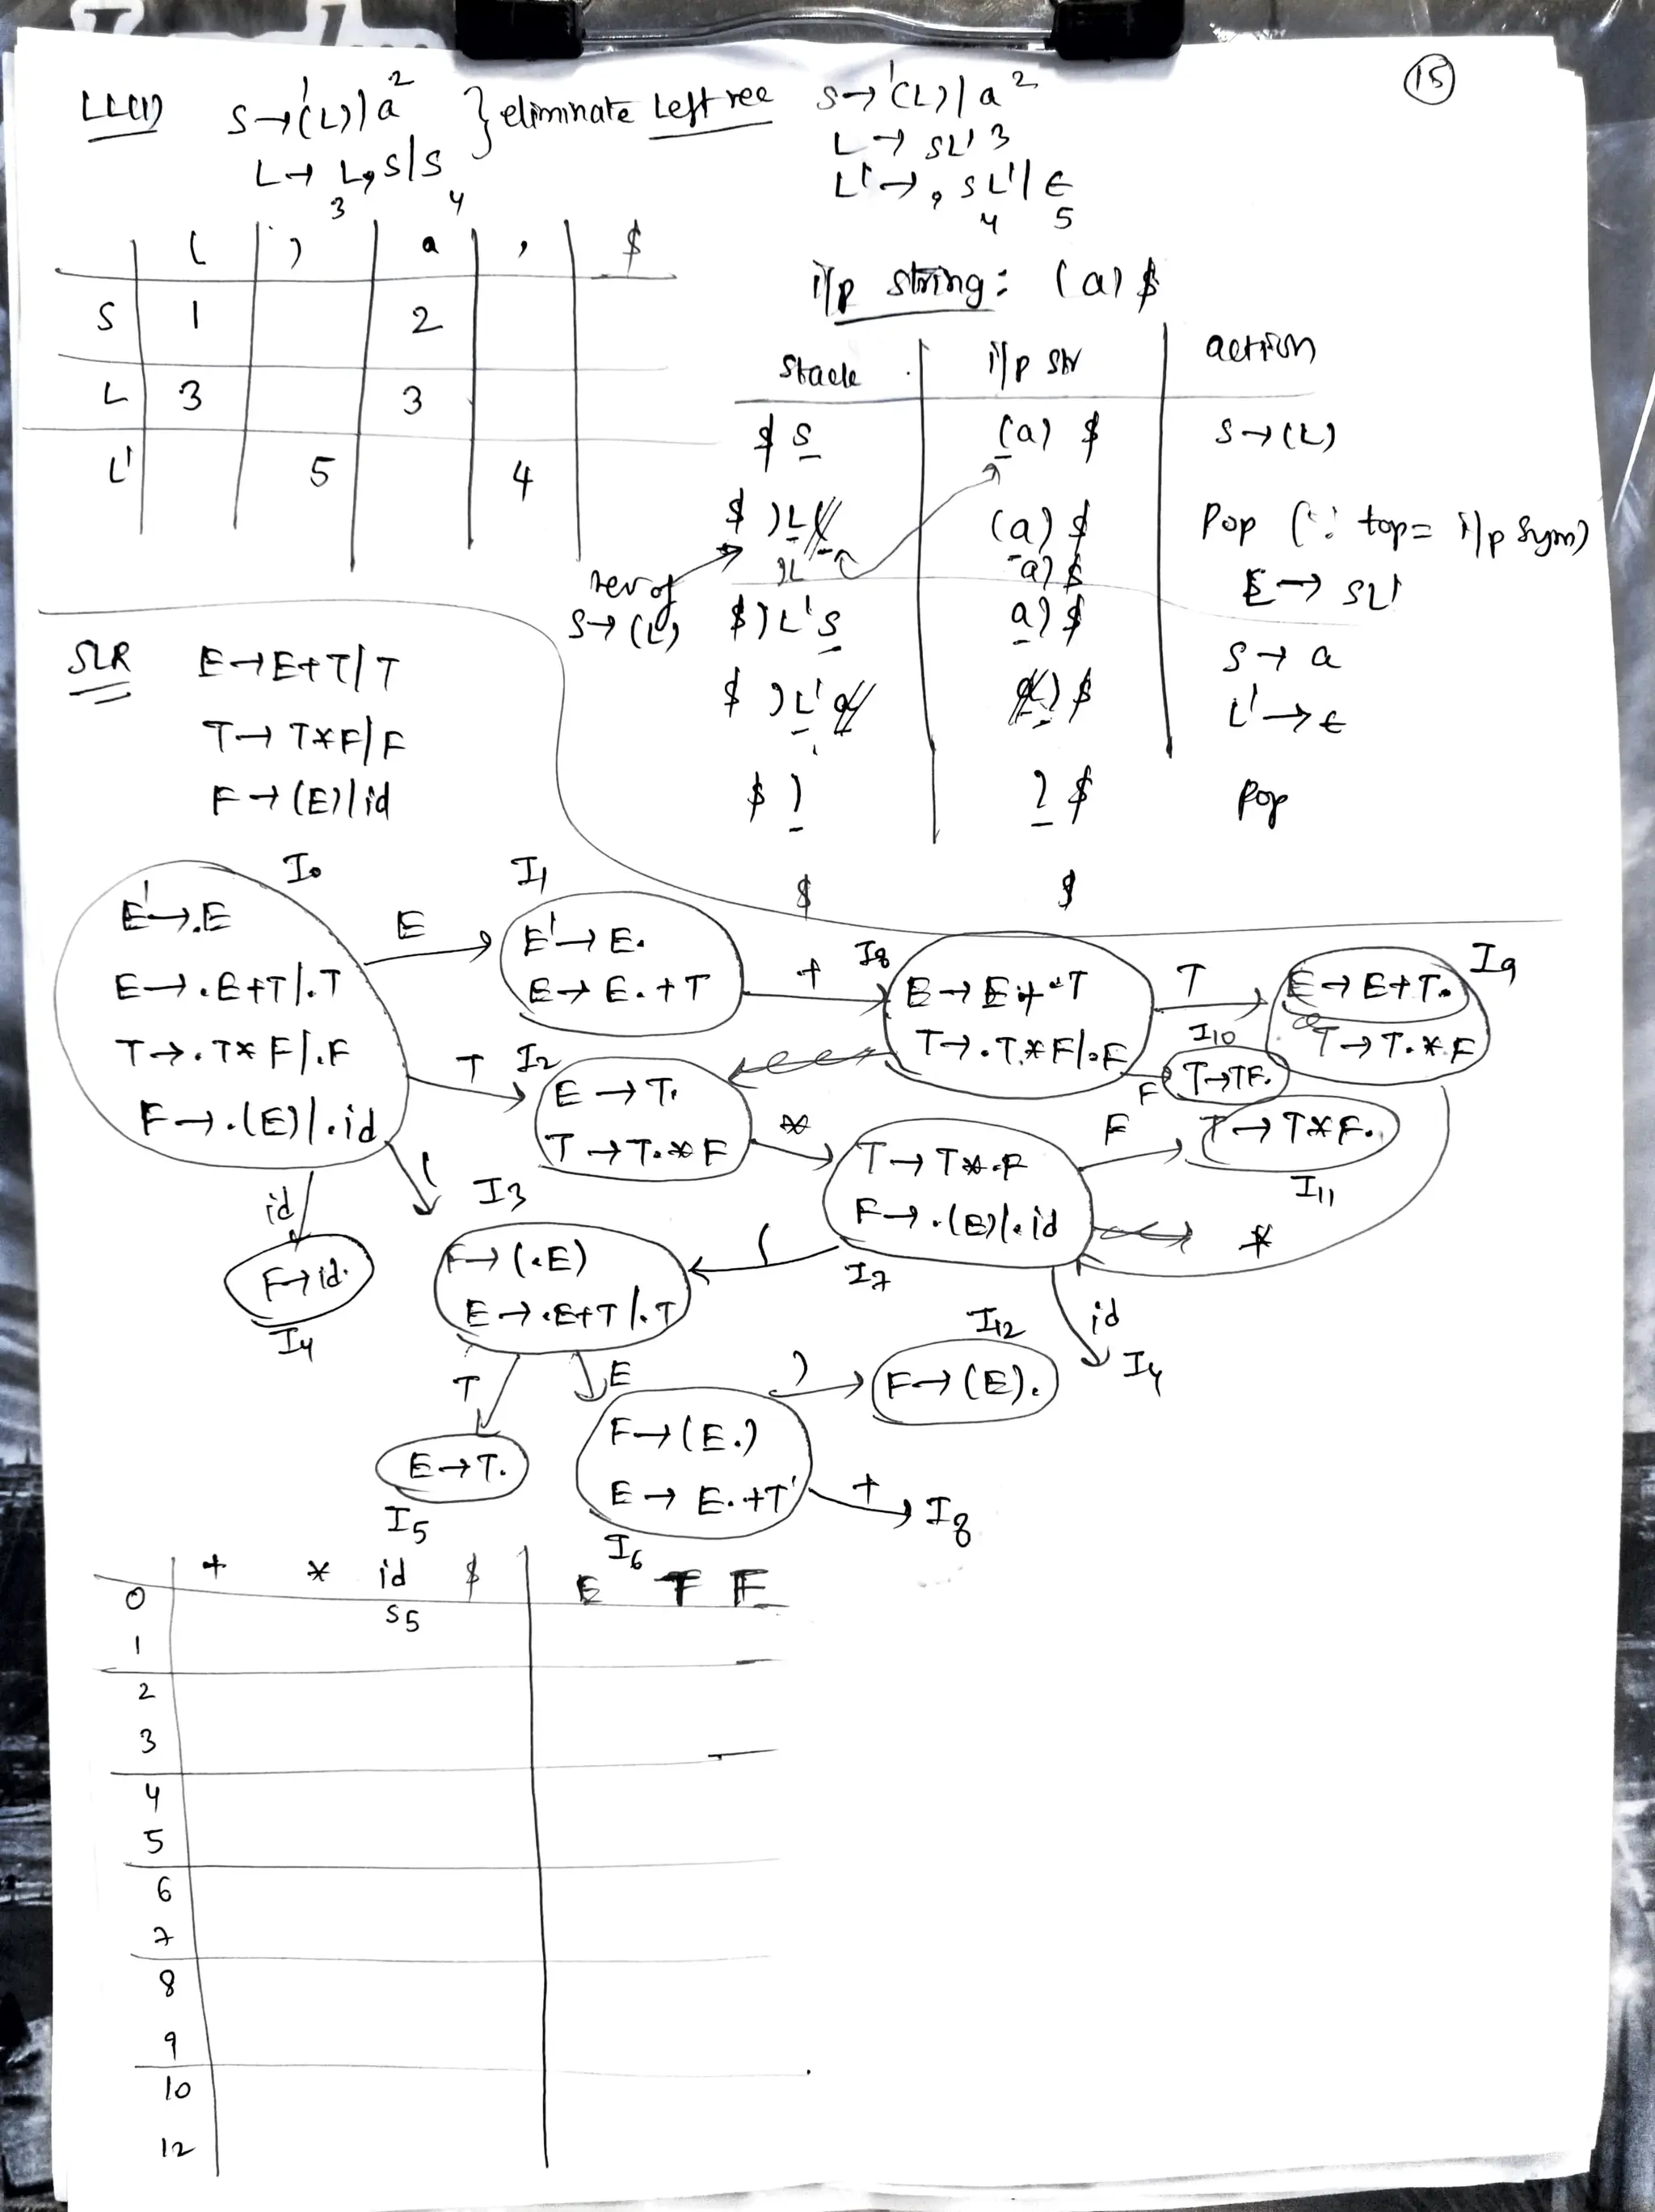 15
LL(1) S→(L)|a } eliminate Left rec S→(L)|a
1 2 1 2
L→L,S|S L→SL' 3
3 4
L'→,SL'|ε
4 5
( ) a , $
S 1 2
L 3 3
L' 5 4
i/p string: (a)$
Stack i/p str action
$S (a)$ S→(L)
$)L( (a)$ Pop (∵ top= i/p sym)
)L a)$
rev of S→(L)
$)L'S a)$ L→SL'
S→a
$)L'a a)$ L'→ε
$) )$ Pop
$ $
SLR E→E+T|T
T→T*F|F
F→(E)|id
I0
E'→.E
E→.E+T|.T
T→.T*F|.F
F→.(E)|.id
E
I1
E'→E.
E→E.+T
+
I8
E→E+.T
T→.T*F|.F
T
I9
E→E+T.
T→T.*F
F
I10
T→TF.
T
I2
E→T.
T→T.*F
*
T→T*.F
F→.(E)|.id
I7
F
T→T*F.
I11
*
(
I3
F→(.E)
E→.E+T|.T
(
id
F→id.
I4
id
I4
T
E→T.
I5
E
F→(E.)
E→E.+T
I6
)
I12
F→(E).
+
I8
+ * id $ E T F
0 S5
1
2
3
4
5
6
7
8
9
10
12